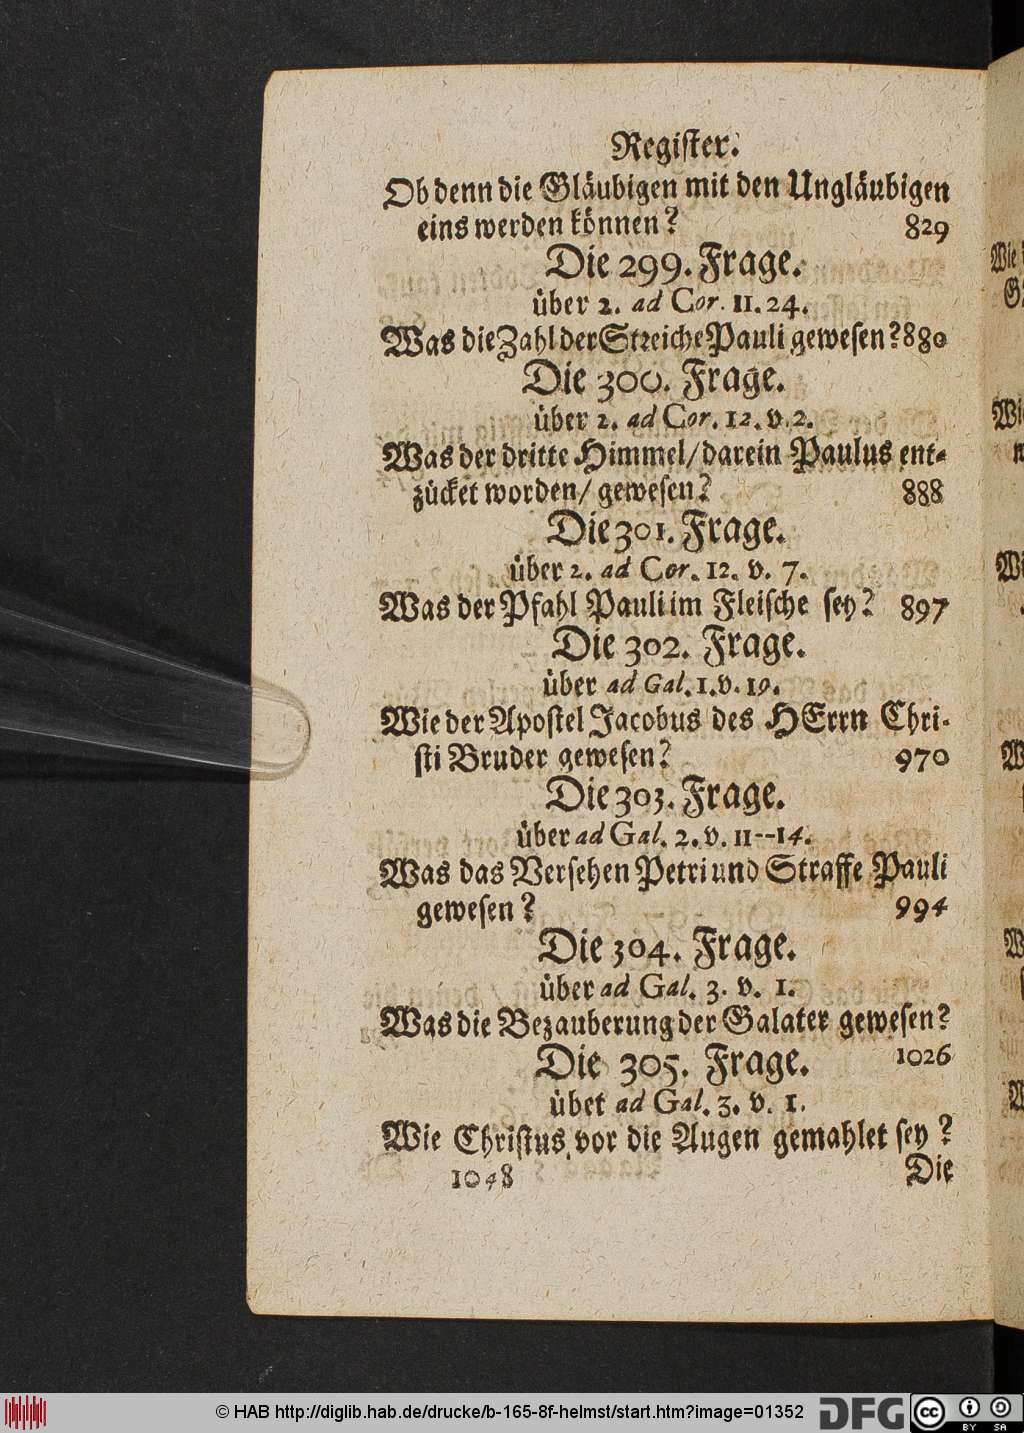 Register.
Ob denn die Gläubigen mit den Ungläubigen
eins werden können? 829
Die 299. Frage.
über 2. ad Cor. 11. 24.
Was die Zahl der Streiche Pauli gewesen? 880
Die 300. Frage.
über 2. ad Cor. 12. v. 2.
Was der dritte Himmel/ darein Paulus ent-
zücket worden/ gewesen? 888
Die 301. Frage.
über 2. ad Cor. 12. v. 7.
Was der Pfahl Pauli im Fleische sey? 897
Die 302. Frage.
über ad Gal. 1. v. 19.
Wie der Apostel Jacobus des HErrn Chri-
sti Bruder gewesen? 970
Die 303. Frage.
über ad Gal. 2. v. 11--14.
Was das Versehen Petri und Straffe Pauli
gewesen? 994
Die 304. Frage.
über ad Gal. 3. v. 1.
Was die Bezauberung der Galater gewesen?
1026
Die 305. Frage.
übet ad Gal. 3. v. 1.
Wie Christus vor die Augen gemahlet sey?
1048
Die
© HAB http://diglib.hab.de/drucke/b-165-8f-helmst/start.htm?image=01352
DFG
cc BY SA